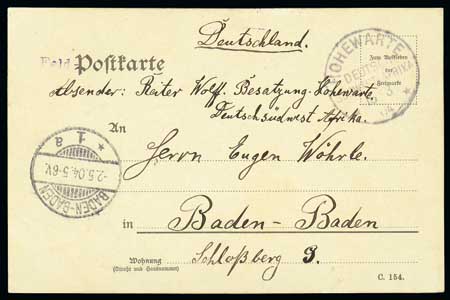 Deutschland.
Feld Postkarte
Absender: Reiter Wolff. Besatzung Hohewarte,
Deutschsüdwest Afrika.
HOHEWARTE
Zum Aufkleben
der
Freimarke
An
Herrn Eugen Wöhrle.
in Baden-Baden
Schloßberg 9.
Wohnung
(Straße und Hausnummer)
C. 154.
* 1. a
-2.5.04.5-6V.
BADEN-BADEN